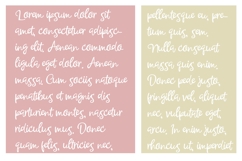 Lorem ipsum dolor sit
amet, consectetur adipisc-
ing elit. Aenean commodo
ligula eget dolor. Aenean
massa. Cum sociis natoque
penatibus et magnis dis
parturient montes, nascetur
ridiculus mus. Donec
quam felis, ultricies nec,
pellentesque eu, pre-
tium quis, sem.
Nulla consequat
massa quis enim.
Donec pede justo,
fringilla vel, aliquet
nec, vulputate eget,
arcu. In enim justo,
rhoncus ut, imperdiet